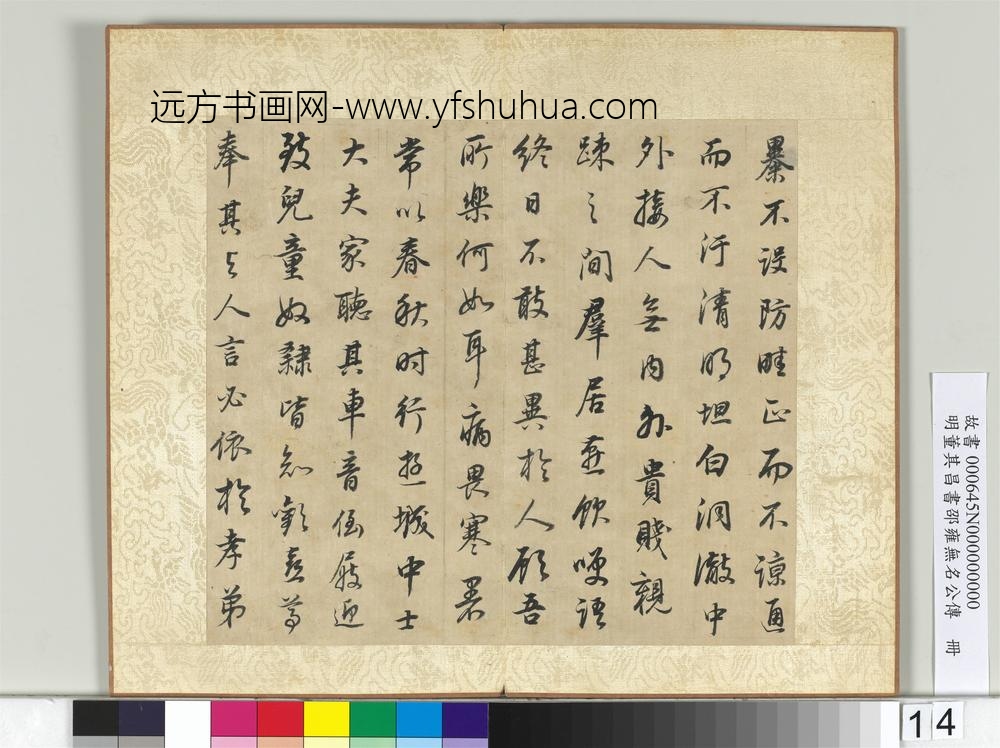 远方书画网-www.yfshuhua.com
暴不設防畦正而不諒通
而不汙清明坦白洞澈中
外接人無內外貴賤親
踈之間群居燕飲哽語
終日不敢甚異於人顧吾
所樂何如耳病畏寒暑
常以春秋时行遊城中士
大夫家聽其車音倒屐迎
致兒童奴隸皆知歡喜尊
奉其与人言必依於孝弟
故書 000645N000000000
明董其昌書邵雍無名公傳 冊
14